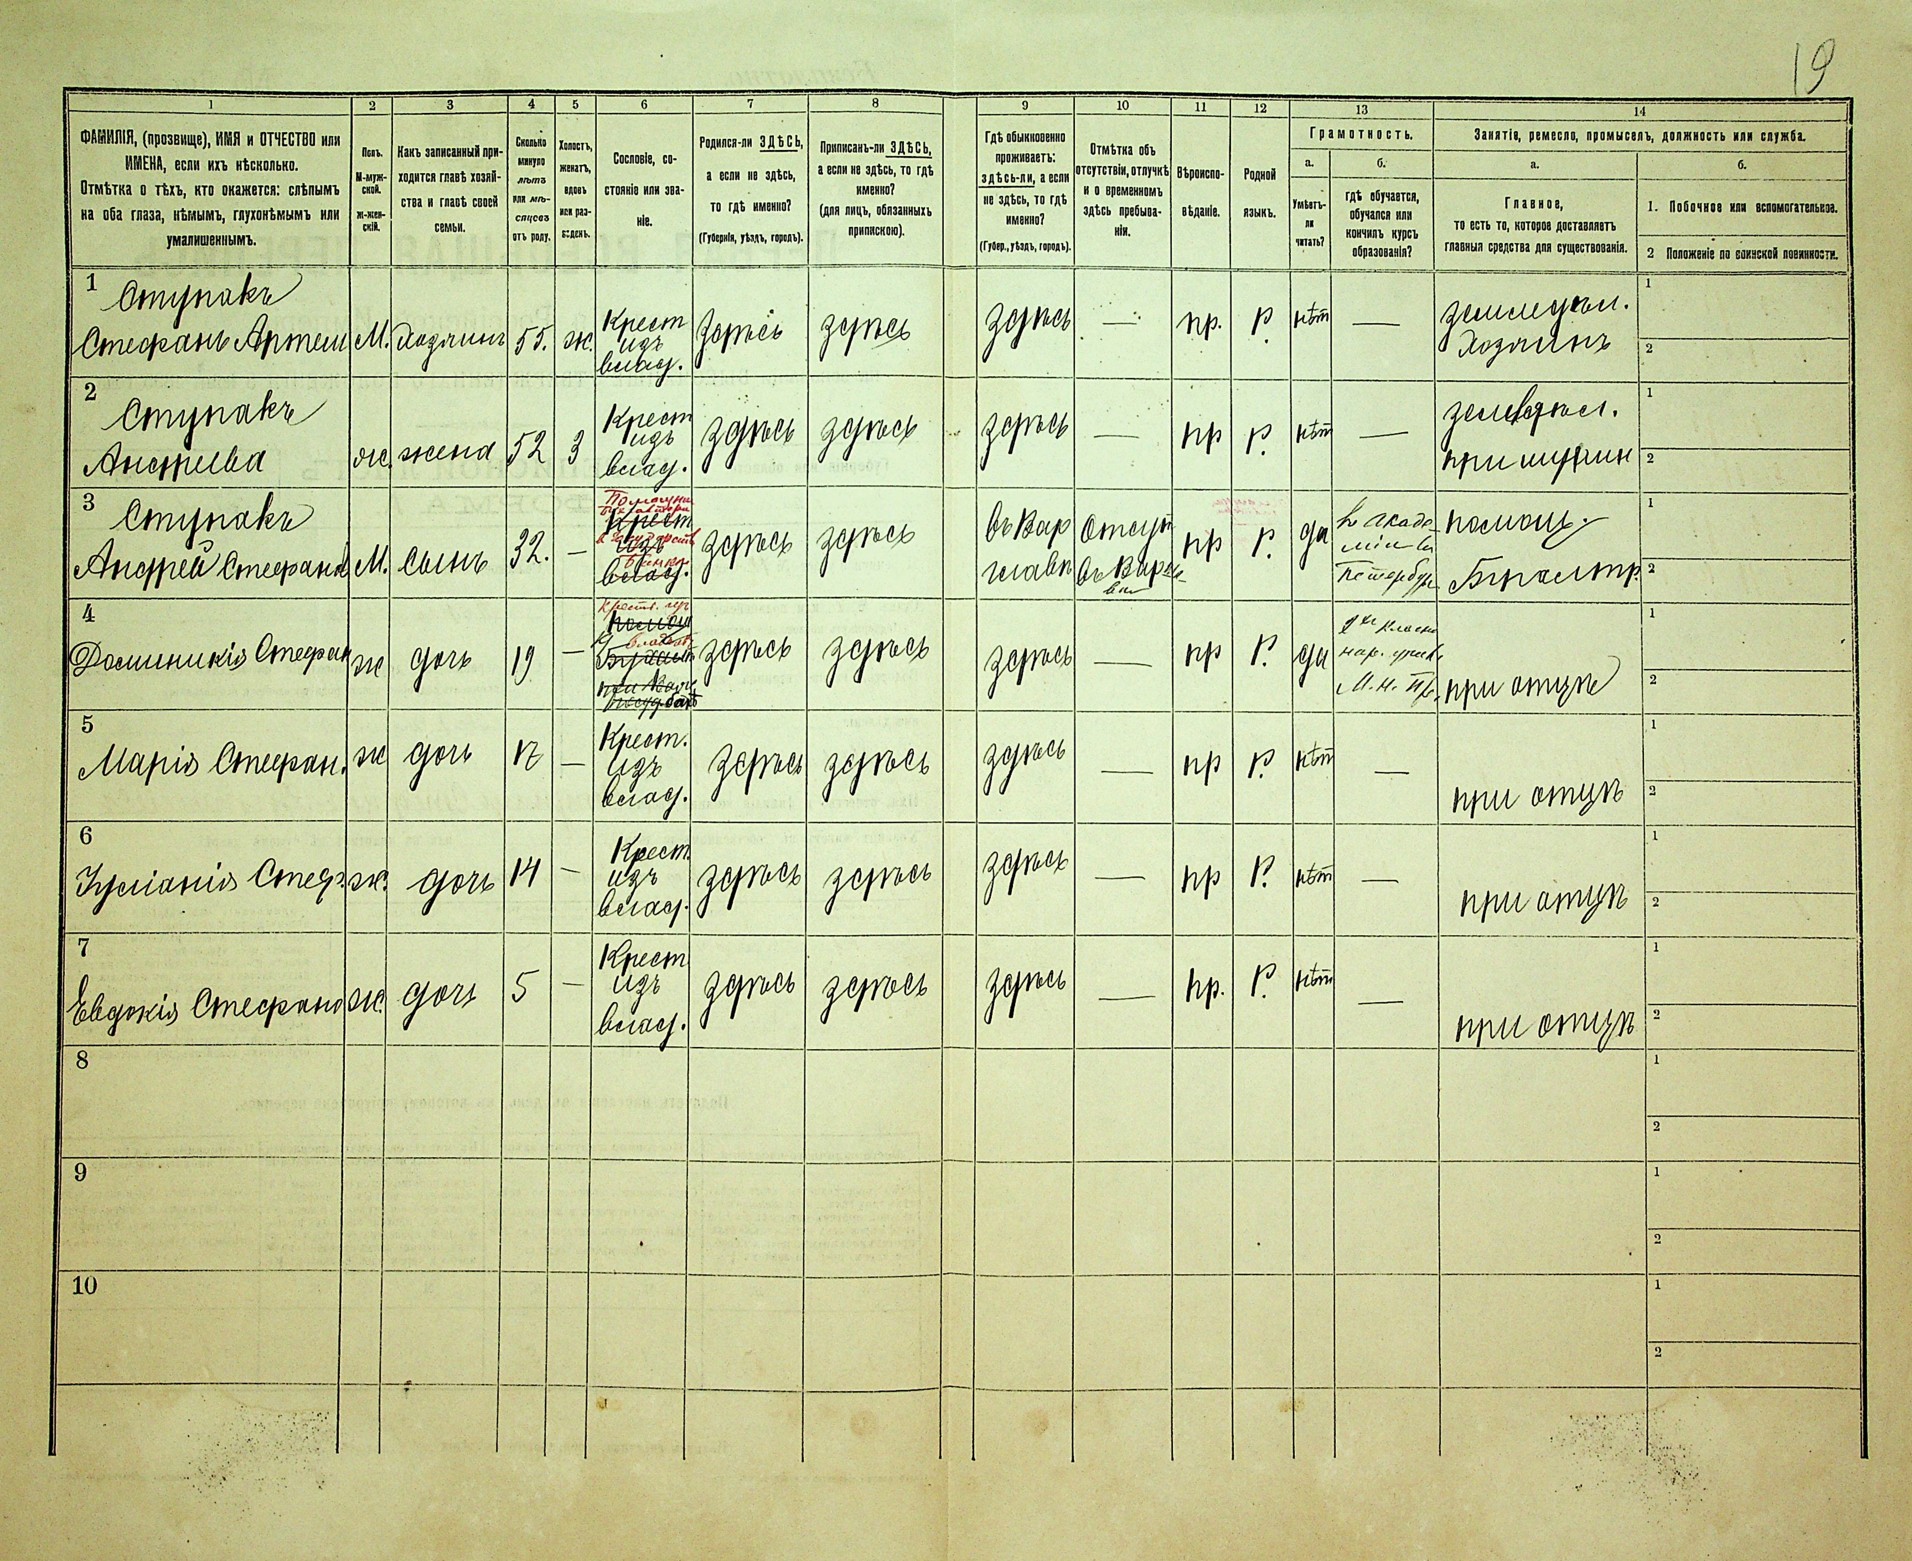 19
1 2 3 4 5 6 7 8 9 10 11 12 13 14
ФАМИЛІЯ, (прозвище), ИМЯ и ОТЧЕСТВО или
ИМЕНА, если ихъ нѣсколько.
Отмѣтка о тѣхъ, кто окажется: слѣпымъ
на оба глаза, нѣмымъ, глухонѣмымъ или
умалишеннымъ.
Полъ.
М-муж-
ской.
ж-жен-
скій.
Какъ записанный при-
ходится главѣ хозяй-
ства и главѣ своей
семьи.
Сколько
минуло
лѣтъ
или мѣ-
сяцевъ
отъ роду.
Холостъ,
женатъ,
вдовъ
или раз-
веденъ.
Сословіе, со-
стояніе или зва-
ніе.
Родился-ли ЗДѢСЬ,
а если не здѣсь,
то гдѣ именно?
(Губернія, уѣздъ, городъ).
Приписанъ-ли ЗДѢСЬ,
а если не здѣсь, то гдѣ
именно?
(для лицъ, обязанныхъ
припискою).
Гдѣ обыкновенно
проживаетъ:
здѣсь-ли, а если
не здѣсь, то гдѣ
именно?
(Губер., уѣздъ, городъ).
Отмѣтка объ
отсутствіи, отлучкѣ
и о временномъ
здѣсь пребыва-
ніи.
Вѣроиспо-
вѣданіе.
Родной
языкъ.
Грамотность.
а.
Умѣетъ-
ли
читать?
б.
гдѣ обучается,
обучался или
кончилъ курсъ
образованія?
Занятіе, ремесло, промыселъ, должность или служба.
а.
Главное,
то есть то, которое доставляетъ
главныя средства для существованія.
б.
1. Побочное или вспомогательное.
2 Положеніе по воинской повинности.
1
Ступакъ
Стефанъ Артем М. Хозяинъ 55. ж.
Крест
изъ
влад.
здѣсь здѣсь здѣсь — пр. Р. нѣт —
земледѣл.
Хозяинъ
1
2
2
Ступакъ
Андреева ж. жена 52 З
Крест
изъ
влад.
здѣсь здѣсь здѣсь — пр Р. нѣт —
земледѣл.
1
2
3
Ступакъ
Андрей Стефанов М. сынъ 32. —
Крест
изъ
влад.
здѣсь здѣсь
въ Вар
Отсут
въ Варша
ве
пр Р. да
въ Акаде-
міи въ
Петербур.
помощ.
1
2
4
Доминикія Стефан ж дочь 19 —
здѣсь здѣсь здѣсь — пр Р. да
нар. учил.
М. н. Пр.
при отцѣ
1
2
5
Марія Стефан. ж дочь 17 —
Крест.
изъ
влад.
здѣсь здѣсь здѣсь — пр Р. нѣт —
при отцѣ
1
2
6
Иуліанія Стеф. ж. дочь 14 —
Крест.
изъ
влад.
здѣсь здѣсь здѣсь — пр Р. нѣт —
при отцѣ
1
2
7
Евдокія Стефано ж. дочь 5 —
Крест
изъ
влад.
здѣсь здѣсь здѣсь — пр. Р. нѣт —
при отцѣ
1
2
8
1
2
9
1
2
10
1
2